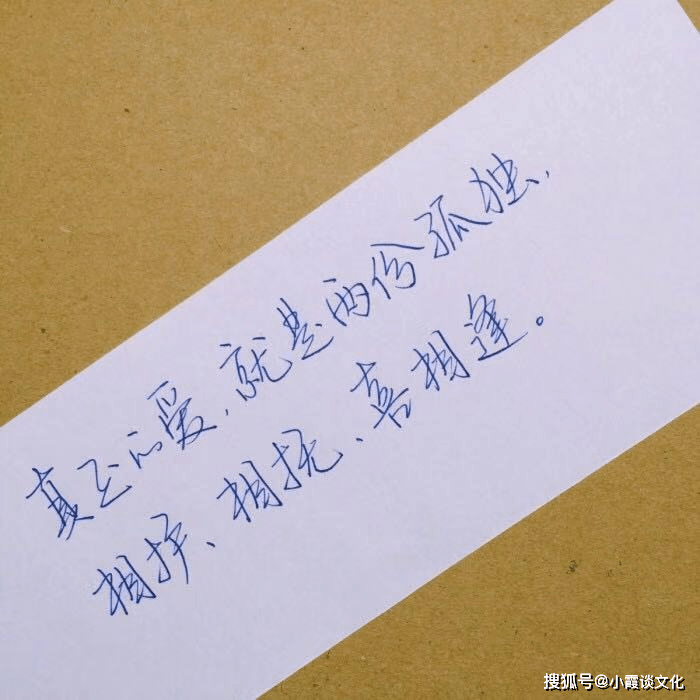 真正的爱,就是两份孤独,
相护、相抚、喜相逢。
搜狐号@小霞谈文化